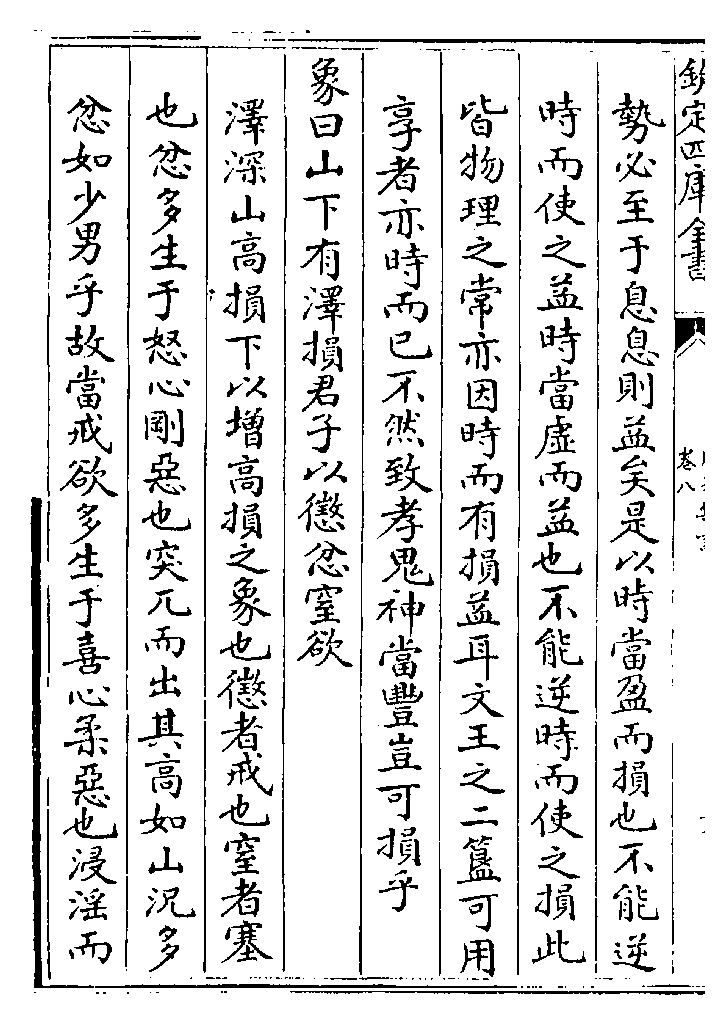 欽定四庫全書
卷八
勢必至于息息則益矣是以時當盈而損也不能逆
時而使之益時當虛而益也不能逆時而使之損此
皆物理之常亦因時而有損益耳文王之二簋可用
享者亦時而已不然致孝鬼神當豐豈可損乎
象曰山下有澤損君子以懲忿窒欲
澤深山高損下以增高損之象也懲者戒也窒者塞
也忿多生于怒心剛惡也突兀而出其高如山况多
忿如少男乎故當戒欲多生于喜心柔惡也浸淫而